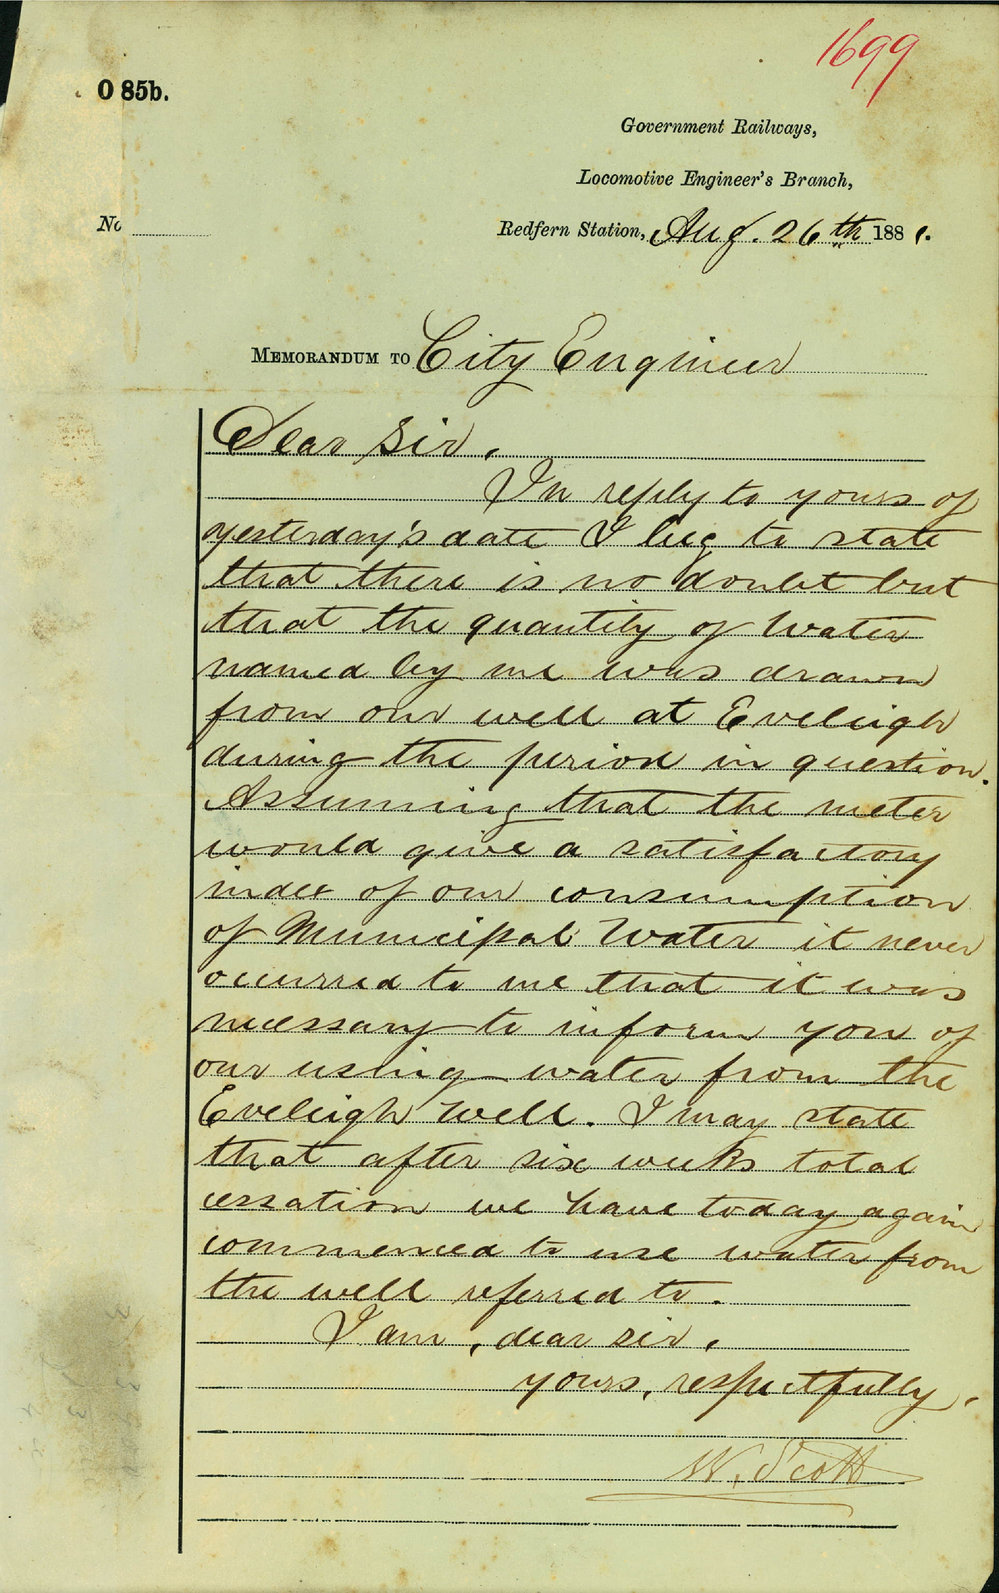 1699
O 85b.
Government Railways,
Locomotive Engineer's Branch,
No
Redfern Station, Aug. 26th 1881.
MEMORANDUM TO City Engineer
Dear Sir,
In reply to yours of
yesterday's date I beg to state
that there is no doubt but
that the quantity of Water
named by me was drawn
from our well at Eveleigh
during the period in question.
Assuming that the meter
would give a satisfactory
index of our consumption
of Municipal Water it never
occurred to me that it was
necessary to inform you of
our using water from the
Eveleigh Well. I may state
that after six weeks total
cessation we have today again
commenced to use water from
the well referred to.
I am, dear sir,
yours, respectfully,
W. Scott